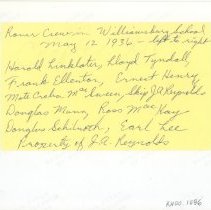 Roner Crew in Williamsburg School
May 12 1936 - left to right
Harold Linklater, Lloyd Tyndall,
Frank Ellerton, Ernest Henry
Mate Croha MacQueen, Skip J.A. Reynolds
Douglas Munn, Ross MacKay
Douglas Schibroth, Earl Lee
Property of J.A. Reynolds